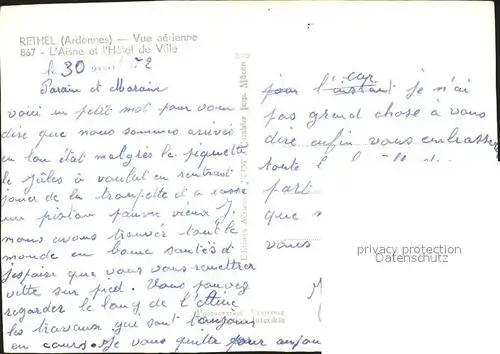 RETHEL (Ardennes) — Vue aérienne
867 - L'Aisne et l'Hôtel de Ville
le 30 avril 72
Parain et Maraine
voici un petit mot pour vous
dire que nous sommes arrivés
en bon état malgrès la piquette
le Jules à voulut en rentrant
jouer de la trompette et a cassé
un piston pauvre vieux J.
nous avons trouver tout le
monde en bonne santés et
j'espaire que vous vous remettrer
vitte sur pied. Vous pouvez
regarder le long de l'Aisne
les travaux que sont toujours
en cours. Je vous quitte pour aujou
pour l'instant car je n'ai
pas grand chose à vous
dire enfin vous embrasse
toute la
part
que
vous
privacy protection
Datenschutz